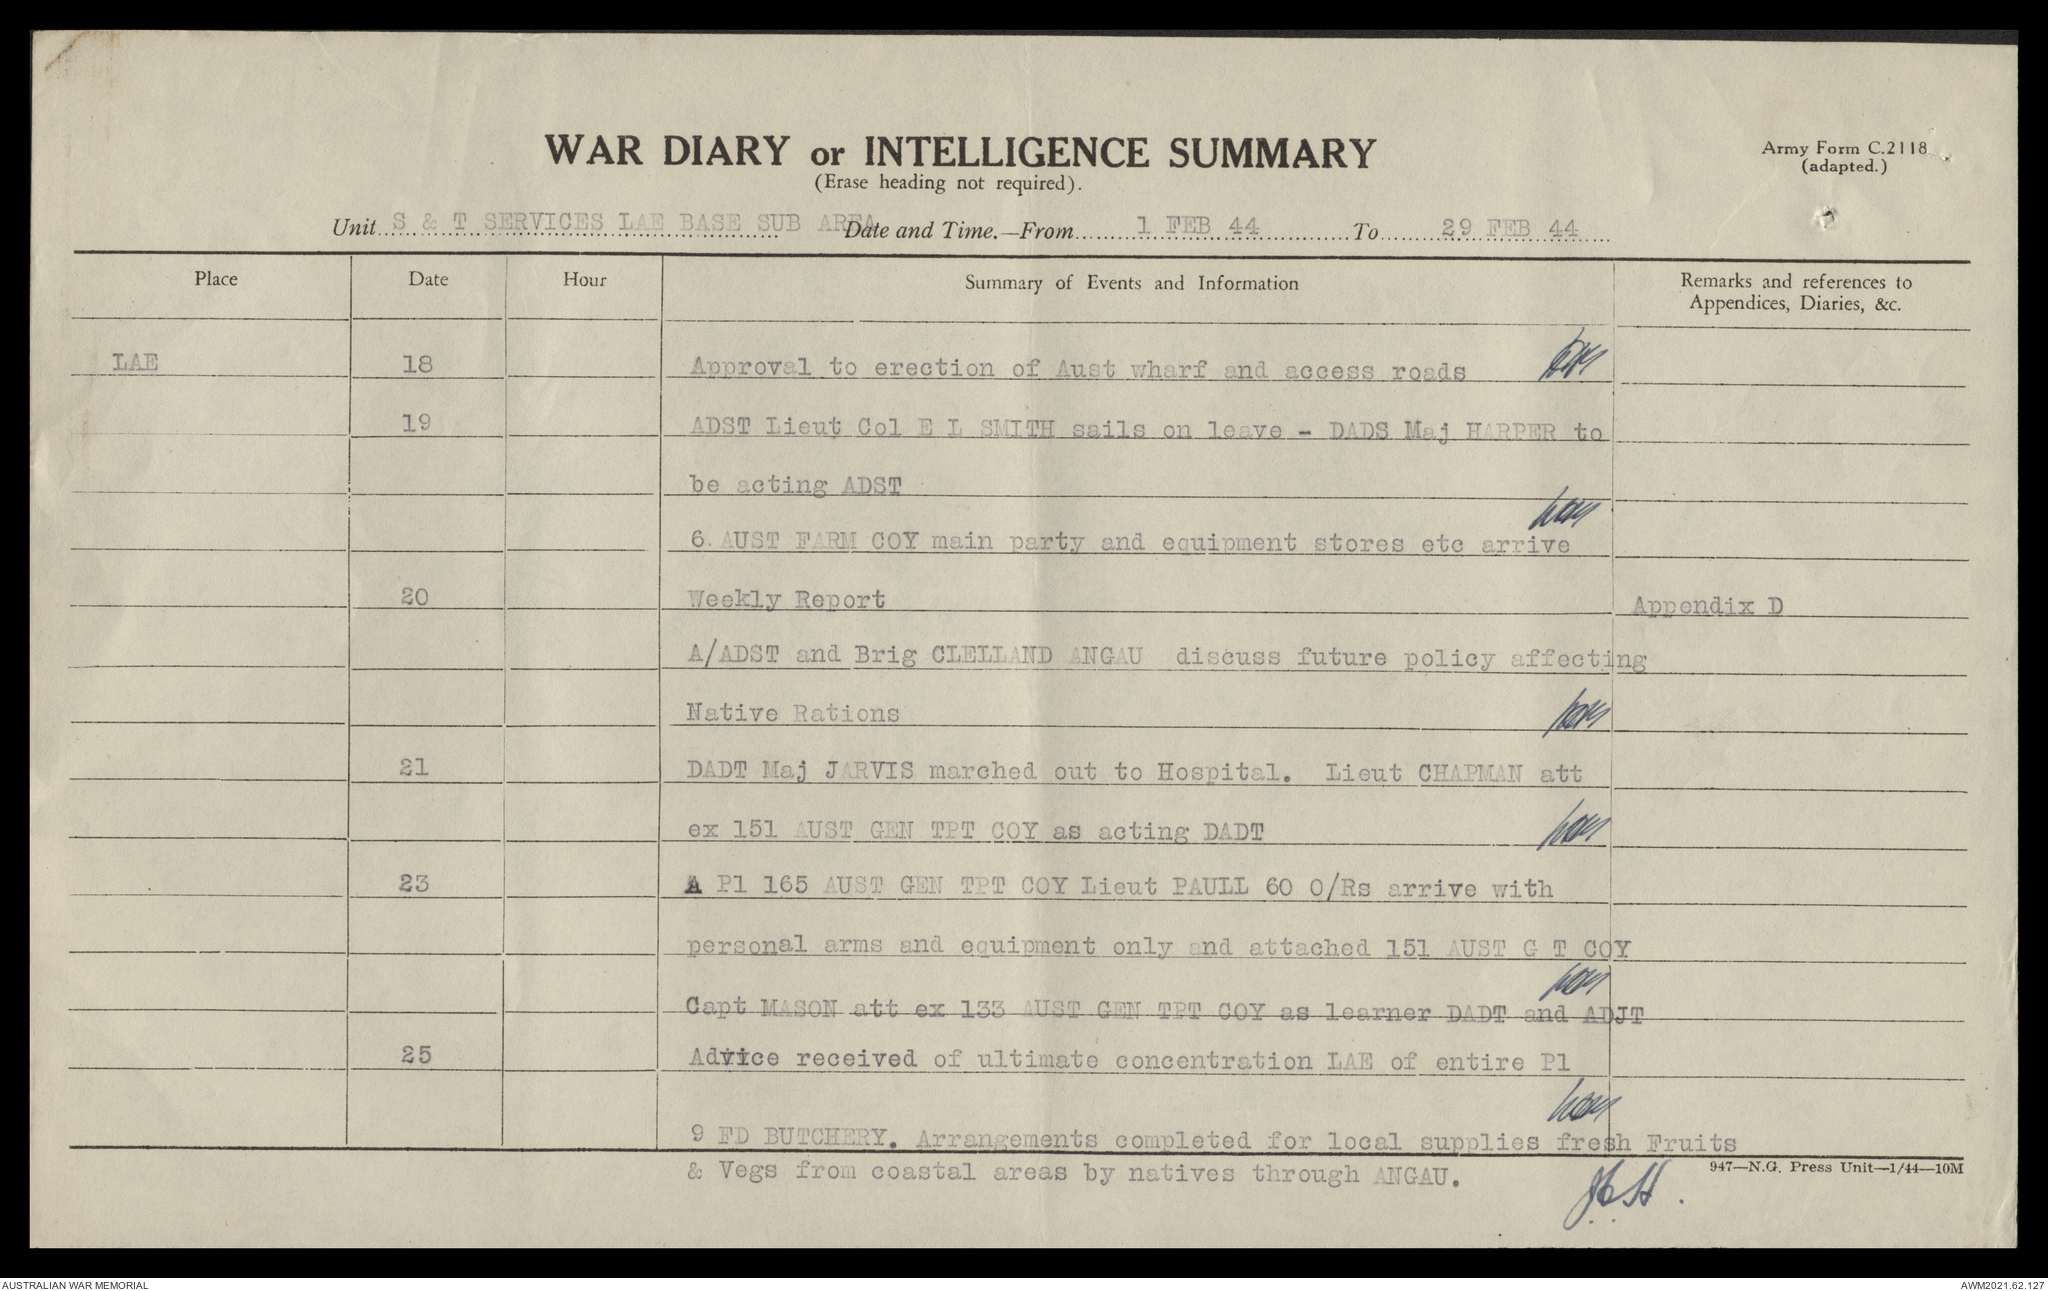 WAR DIARY or INTELLIGENCE SUMMARY
(Erase heading not required).
Army Form C.2118
(adapted.)
Unit S & T SERVICES LAE BASE SUB AREA Date and Time.—From 1 FEB 44 To 29 FEB 44
Place Date Hour Summary of Events and Information Remarks and references to Appendices, Diaries, &c.
LAE 18 Approval to erection of Aust wharf and access roads
19 ADST Lieut Col E L SMITH sails on leave - DADS Maj HARPER to
be acting ADST
6 AUST FARM COY main party and equipment stores etc arrive
20 Weekly Report Appendix D
A/ADST and Brig CLELLAND ANGAU discuss future policy affecting
Native Rations
21 DADT Maj JARVIS marched out to Hospital. Lieut CHAPMAN att
ex 151 AUST GEN TPT COY as acting DADT
23 A Pl 165 AUST GEN TPT COY Lieut PAULL 60 O/Rs arrive with
personal arms and equipment only and attached 151 AUST G T COY
Capt MASON att ex 133 AUST GEN TPT COY as learner DADT and ADJT
25 Advice received of ultimate concentration LAE of entire Pl
9 FD BUTCHERY. Arrangements completed for local supplies fresh Fruits
& Vegs from coastal areas by natives through ANGAU.
947—N.G. Press Unit—1/44—10M
AUSTRALIAN WAR MEMORIAL
AWM2021.62.127